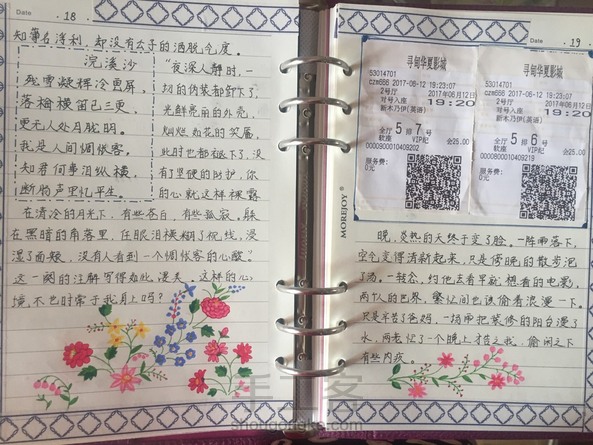 Date
. 18 .
知著名浮利，却没有公子的洒脱气度。
浣溪沙
残雪凝辉冷画屏，
落梅横笛已三更，
更无人处月胧明。
我是人间惆怅客，
知君何事泪纵横，
断肠声里忆平生。
“夜深人静时，一
切的伪装都卸下了，
光鲜亮丽的外壳，
灿烂如花的笑靥，
此时也都褪下了，没
有了坚硬的防护，你
的心就这样裸露
在清冷的月光下，有些苍白，有些孤寂。躲
在黑暗的角落里，任眼泪模糊了视线，浸
湿了面颊，没有人看到一个惆怅客的心酸”
这一阕的注解写得如此凄美。这样的心
境，不也时常于我身上吗？
MOREJOY®
Date
. 19 .
寻甸华夏影城
53014701
czm666 2017-06-12 19:23:07
2号厅 2017年06月12日
对号入座 19:20
新木乃伊(英语)
全厅 5 排 7 号
软座 VIP纪 金25.00
0000800010409202
服务费:
0元
寻甸华夏影城
53014701
czm666 2017-06-12 19:23:07
2号厅 2017年06月12日
对号入座 19:20
新木乃伊(英语)
全厅 5 排 6 号
软座 VIP纪 金25.00
0000900010409219
服务费:
0元
晚，炎热的天终于变了脸。一阵雨落下，
空气变得清新起来，只是傍晚的散步泡
了汤。一转念，约他去看早就想看的电影，
两个人的世界，繁忙间也该偷着浪漫一下。
只是辛苦了爸妈，一场雨把装修的阳台漫了
水，两老忙了一个晚上才搭之我，偷闲之下
有些内疚。
手工客
shougongke.com